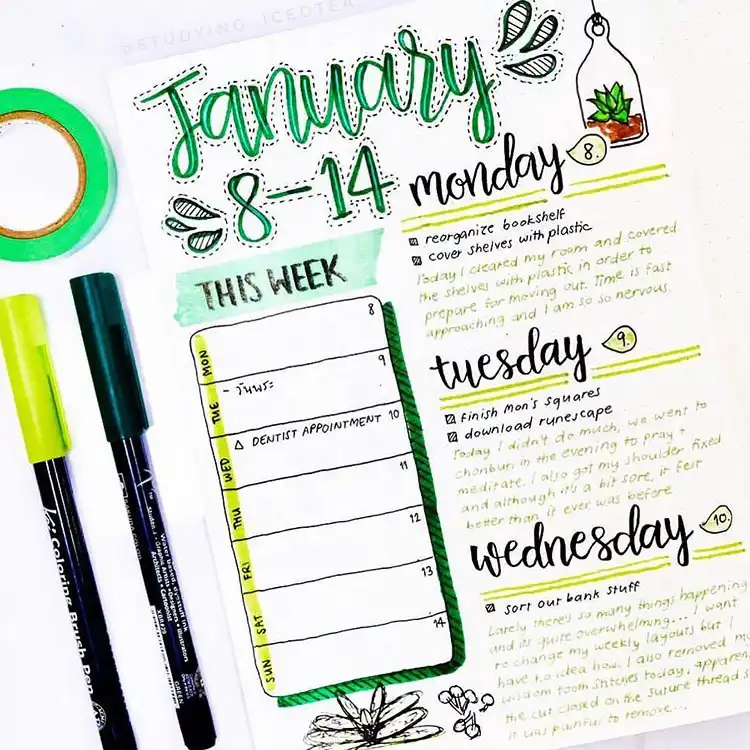 @STUDYING_ICEDTEA
January
8-14
THIS WEEK
MON 8
TUE 9
- วันพระ
WED 10
△ DENTIST APPOINTMENT
THU 11
FRI 12
SAT 13
SUN 14
monday 8.
reorganize bookshelf
cover shelves with plastic
Today I cleared my room and covered
the shelves with plastic in order to
prepare for moving out. Time is fast
approaching and I am so so nervous.
tuesday 9.
finish mon's squares
download runescape
Today I didn't do much, we went to
chonburi in the evening to pray +
meditate. I also got my shoulder fixed
and although it's a bit sore, it felt
better than it ever was before
wednesday 10.
sort out bank stuff
Lately there's so many things happening
and its quite overwhelming... I want
to change my weekly layouts but I
have no idea how. I also removed my
wisdom tooth stitches today, apparen
the cut closed on the suture thread s
it was painful to remove...
Koi Coloring Brush Pen
Water based, dyestuff ink
Studio • Graphic Artists • Designers
Architects • Cartoonist • Illustrators